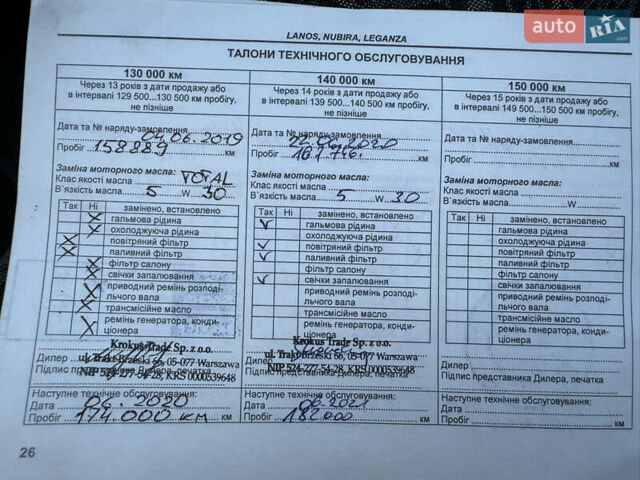 auto RIA.com
LANOS, NUBIRA, LEGANZA
ТАЛОНИ ТЕХНІЧНОГО ОБСЛУГОВУВАННЯ
130 000 км
Через 13 років з дати продажу або
в інтервалі 129 500...130 500 км пробігу,
не пізніше
Дата та № наряду-замовлення
04.06.2019
Пробіг 158889 км
Заміна моторного масла: TOTAL
Клас якості масла
В`язкість масла 5 W 30
Так Ні замінено, встановлено
гальмова рідина
охолоджуюча рідина
повітряний фільтр
паливний фільтр
фільтр салону
свічки запалювання
приводний ремінь розподі-
льчого вала
трансмісійне масло
ремінь генератора, конди-
ціонера
Krokus Trade Sp. z o.o.
ul. Trakt Brzeski 66, 05-077 Warszawa
Дилер
NIP 524-277-54-28, KRS 0000539648
Підпис представника Дилера, печатка
Наступне технічне обслуговування:
Дата 06.2020
Пробіг 174.000 км
140 000 км
Через 14 років з дати продажу або
в інтервалі 139 500...140 500 км пробігу,
не пізніше
Дата та № наряду-замовлення
Пробіг км
Заміна моторного масла:
Клас якості масла
В`язкість масла 5 W 30
Так Ні замінено, встановлено
гальмова рідина
охолоджуюча рідина
повітряний фільтр
паливний фільтр
фільтр салону
свічки запалювання
приводний ремінь розподі-
льчого вала
трансмісійне масло
ремінь генератора, конди-
ціонера
Krokus Trade Sp. z o.o.
ul. Trakt Brzeski 66, 05-077 Warszawa
Дилер
NIP 524-277-54-28, KRS 0000539648
Підпис представника Дилера, печатка
Наступне технічне обслуговування:
Дата 06.2021
Пробіг 182000 км
150 000 км
Через 15 років з дати продажу або
в інтервалі 149 500...150 500 км пробігу,
не пізніше
Дата та № наряду-замовлення
Пробіг км
Заміна моторного масла:
Клас якості масла
В`язкість масла W
Так Ні замінено, встановлено
гальмова рідина
охолоджуюча рідина
повітряний фільтр
паливний фільтр
фільтр салону
свічки запалювання
приводний ремінь розподі-
льчого вала
трансмісійне масло
ремінь генератора, конди-
ціонера
Дилер
Підпис представника Дилера, печатка
Наступне технічне обслуговування:
Дата
Пробіг км
26